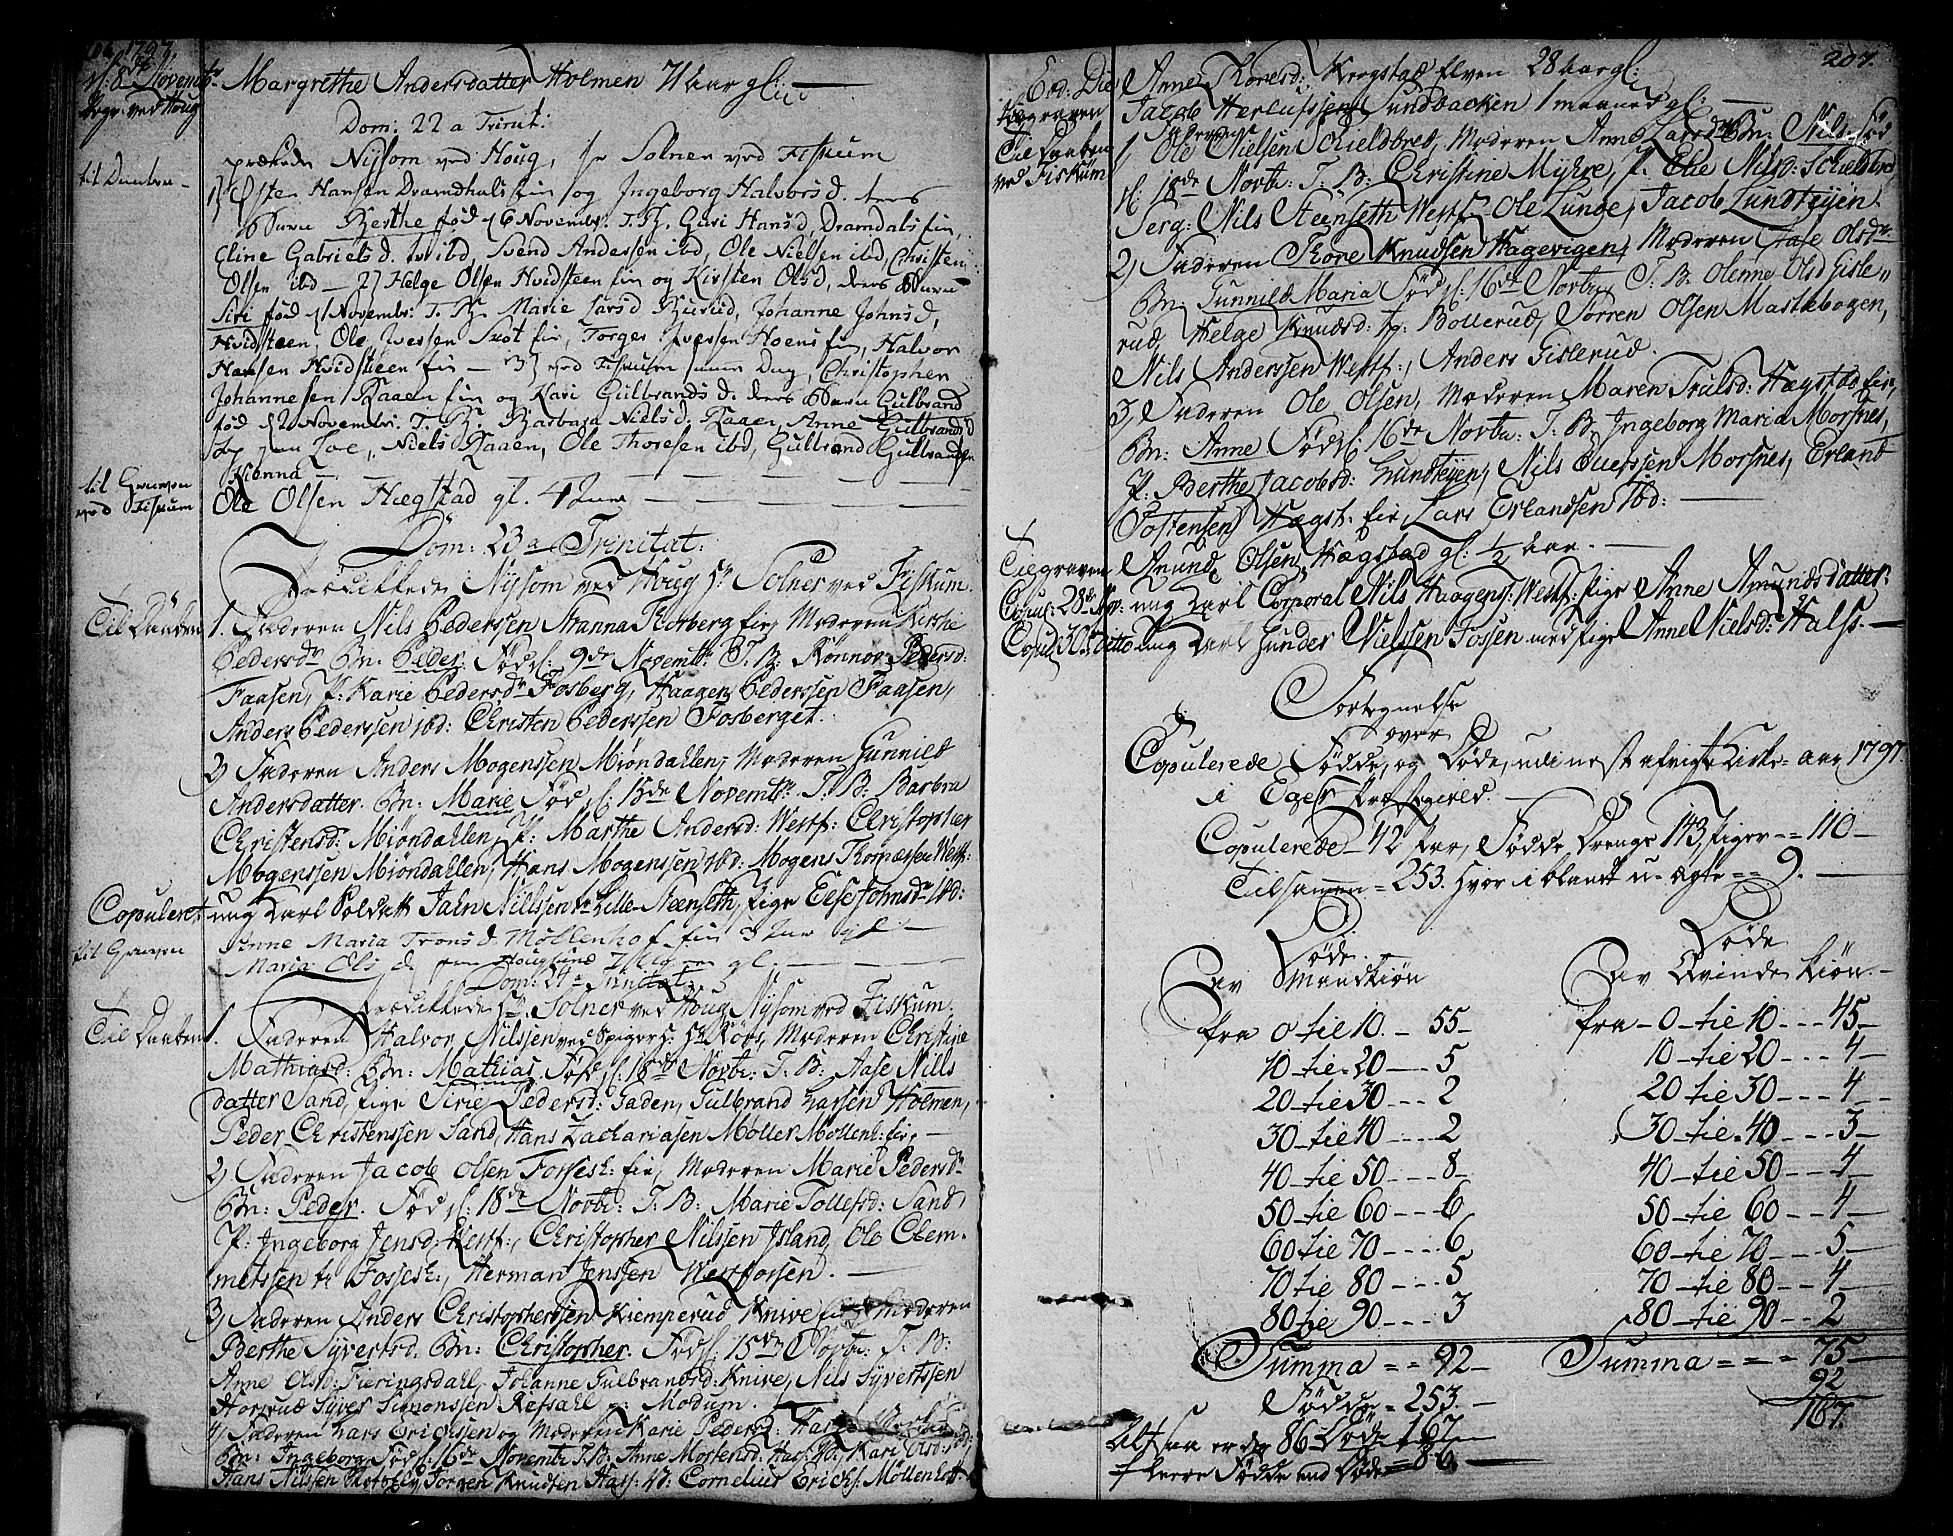 1797.
d: 8de Novembr
Begr: ved Houg
Margrethe Andersdatter Holmen 71 aar gl:
Dom: 22 a Trinit:
prækede Nysom ved Houg, Hr Solner ved Fiskum
til Daaben
1) Hansen Dramdhals fin og Ingeborg Halvorsd. deres
Barn Berthe fød d 6 Novembr. T. B. Guri Hansd, Dramdals fin,
Eline Gabrielsd. ibid, Svend Andersen ibd, Ole Nielsen ibd, Christen
Olsen ibd – 2) Helge Olsen Hvidsteen fin og Kirsten Olsd, deres Barn
Siri fød d Novembr: T. B. Marie Larsd Burud, Johanne Johnsd,
Hvidsteen, Ole Iversen fin, Torger Iversen Hoens fin, Halvor
Hansen Hvidsteen fin – 3) ved Fiskum samme Dag, Christopher
Johannesen Kaaen fin og Kari Gulbrandsd. deres Barn Gulbrand
fød d 2 Novembr: T. B. Barbara Nielsd. Kaaen, Anne Gulbrandsd
Niels Kaaen, Ole Thoresen ibd, Gulbrand Gulbrandsen
til Graven
ved Fiskum
Ole Olsen Hægstad gl. 4 Aar
Dom: 23 a Trinitat:
Prædikkede Nysom ved Houg Hr Solner ved Fiskum.
Til Daaben
1. Faderen Nils Pedersen Stranna Fosberg fie, Moderen Kirstie
Pedersdr Bn: Peder. Fød d: 9de Novembr T. B: Rønnov Pedersd:
Faasen, P: Karie Pedersdr Fosberg, Haagen Pederssen Faasen,
Anders Pederssen ibd: Christen Pederssen Fosberget.
2) Faderen Anders Mogenssen Miøndahlen, Moderen Gunnild
Andersdatter. Bn: Marie Fød d: 15de Novembr. T. B: Barbra
Christensd: Miøndahlen, P: Marthe Andersd: Westf: Christopher
Mogenssen Miøndahlen, Hans Mogenssen ibd: Mogens Thomæssen Westf:
Copuleret
ung Karl Soldatt Jahn Nillssen Lille-Steenseth, Pige Else Johnsdr ibd:
til Graven
Anne Maria Tronsd. Møllenhof fin 3 Aar gl
Maria Elsd. Houglund 7 Uger gl.
Dom: 24 a Trinitat:
Prædikkede Hr. Solner ved Houg, Nysom ved Fiskum.
Til Daaben
1. Faderen Halvor Nilssen ved Spigers: Hr Kørs, Moderen Christine
Mathiasd: Bn: Mathias Fød d: 18de Novbr: T. B: Aase Nills
datter Sand, Pige Sirie Pedersd: Gaden, Gulbrand Larsen Holmen,
Peder Christenssen Sand, Hans Zachariasen Møller Møllenh: fie,
2) Faderen Jacob Olsen Fossesh: fie, Moderen Marie Pedersdr
Bn: Peder. Fød d: 18de Novbr: T: B: Marie Tollefsd: Sand,
P: Ingeborg Jensd: Westf:, Christopher Nilssen Island, Ole Clem-
metssen tr Fossesh:, Herman Jenssen Westfossen.
3) Faderen Anders Christopherssen Kiemperud Knive fie Moderen
Berthe Syvertsd. Bn: Christopher. Fød d: 15de Novbr: T: B:
Anne Olsd: Fieringsdahl, Johanne Gulbrandsd: Knive, Nils Syvertssen
Horsrud Syver Simonssen Refsahl p: Modum.
4) Faderen Lars Erichssen og Moderen Karie Pedersd:
Bn: Ingeborg Fød d: 16de Novembr T: B: Anne Mortensd: Hals: P: Kari
Hans Nilssen Jørgen Knudsen Hals: Cornelius Erichs: Møllenhof
207.
Anne Thoresd: Krogstad elven 28 Aar gl:
Jacob Herlufssen Sundbacken 1 maaned gl:
Til Daaben
ved Fiskum
1, Faderen Ole Nielsen Skieldbred, Moderen Anne Larsdr Bn: Nils Fød
d: 18de Novbr: T: B: Christine Myhre, P: Elie Nilsd: Schieldbred
Serg: Nils Steenseth Westf: Ole Lunde, Jacob Lundtejen.
2) Faderen Thore Knudsen Hagevigen, Moderen Aase Olsdr
Bn: Gunnild Maria Fød d: 16de Novbr. T: B: Olenne Olsd Gisle-
rud, Helge Knudsd: Bollerud, Sørren Olsen Mastebogen,
Nils Anderssen Westf:, Anders Gislerud.
3, Faderen Ole Olsen, Moderen Maren Trulsd: Hægstad eie,
Bn: Anne Fød d: 16de Novbr: T: B: Ingeborg Maria Morsnes,
P: Berthe Jacobsd: Lundtejen, Nils Everssen Morsnes, Erland
Tostensen Hægst: eie, Lars Erlandsen ibd:
Til graven
Anund Olsen Hægstad gl: 1/2 Aar.
Copul: 28de Nov:
ung Karl Corporal Nils Haagens: Westf: Pige Anne Amundsdatter:
Copul 30te ditto
ung Karl Gunder Nielssen Fossen med Pige Anne Nielsd: Hals.
Fortegnelse
over
Copulerede Fødde, og Døde, udi nest afvigte Kirke-aar 1797.
i Eger Præstegield.
Copulerede – 42 Par, Fødde Drenge 143, Piger == 110 –
Tilsamen = 253. Hvor iblandt u-ægte == 9.
Døde
Av Mandkiøn
fra 0 tie 10. – 55 –
10 – tie – 20 – – 5
20 – tie 30 – – – 2
30 – tie 40 – – – 2
40 – tie 50 – – – 8 –
50 – tie 60 – – – 6
60 tie 70 – – – – 6
70 tie 80 – – – 5
80 tie 90 – – – 3
Summa = = 92 –
Fødde = 253. –
Altsaa er der 86 Døde 167
fleere Fødde end Døde = 86
Døde
Av Qvindekiøn.
fra – 0 – tie 10 – – – 45 –
10 – tie 20 – – – 4 –
20 tie 30 – – – 4
30 – tie – 40 – – – 3 –
40 – tie 50 – – – 4 –
50 – tie 60 – – 4 –
60 – tie 70 – – – 5 –
70 – tie 80 – – 4 –
80 – tie 90 – – 2
Summa = = = = 75
92
167.